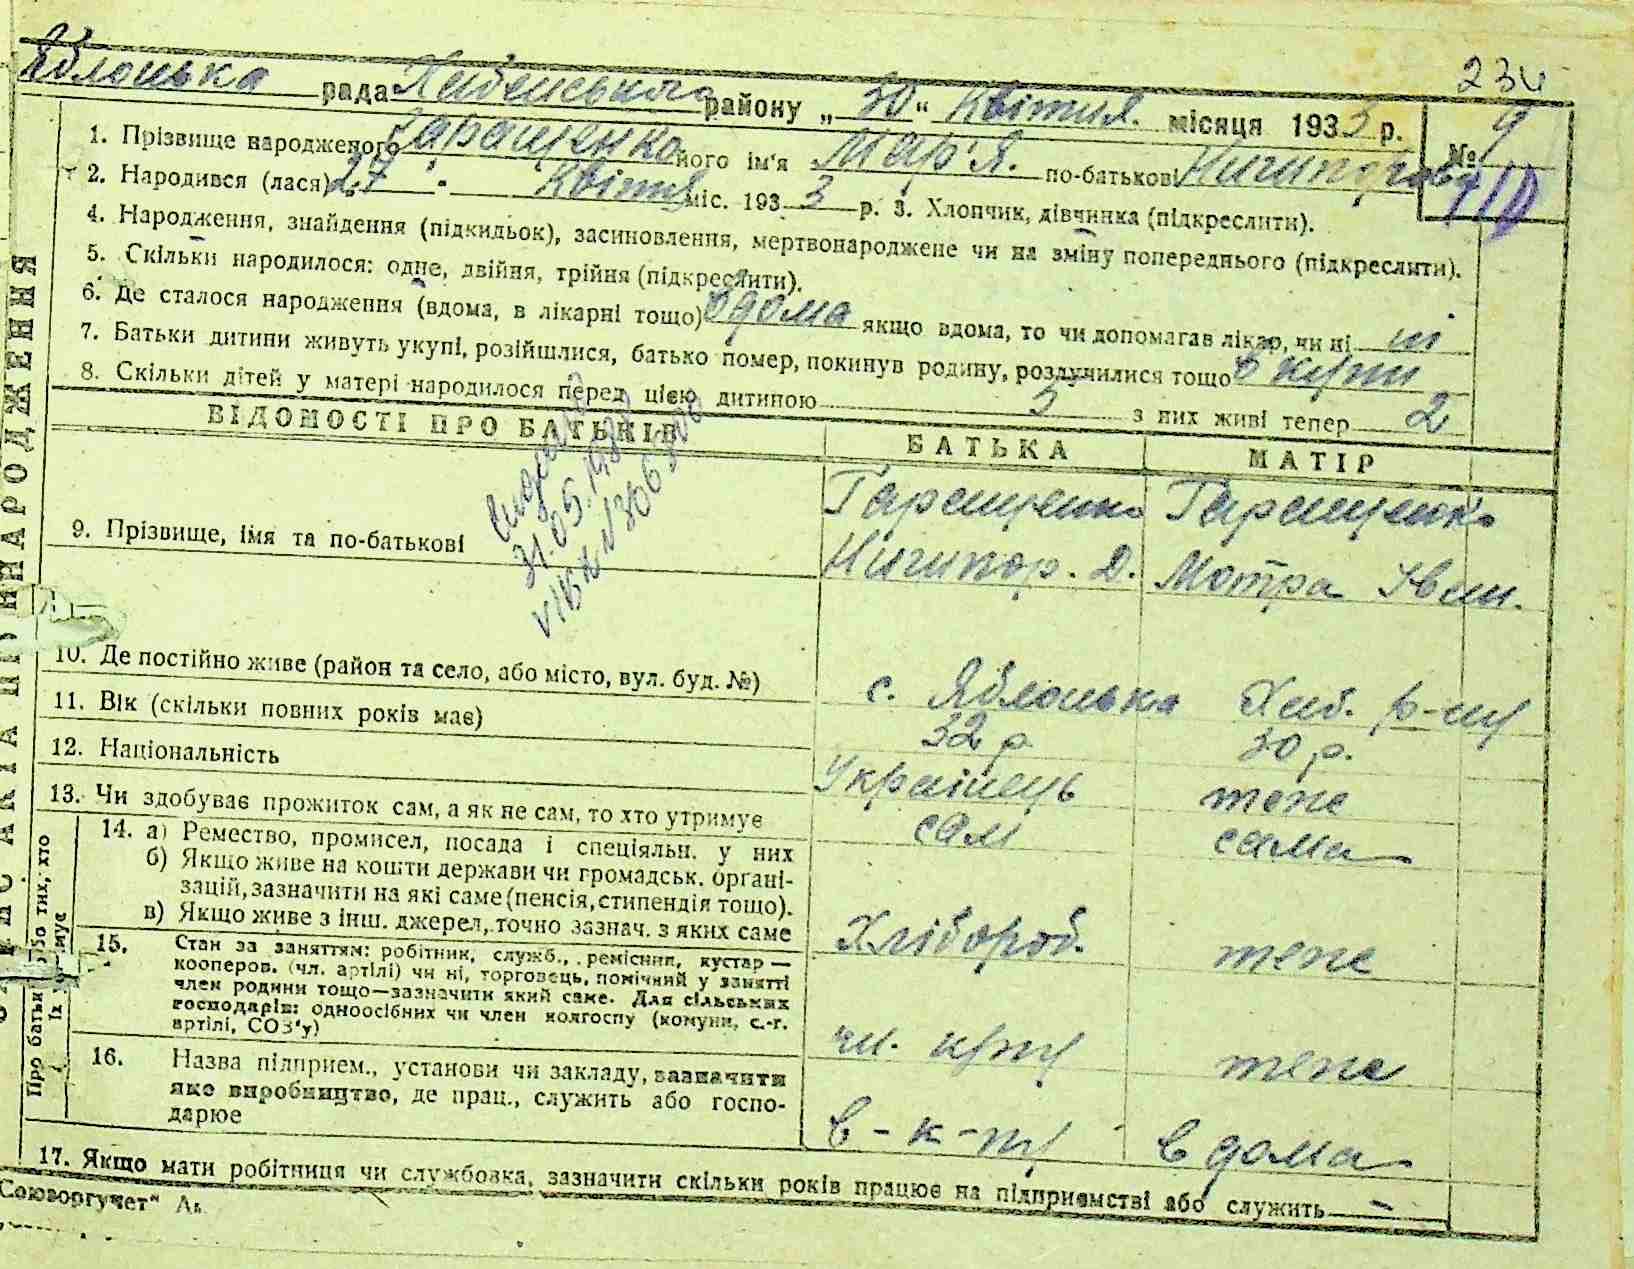 234
Яблонька рада Хабенського району „30" Квітня місяця 1933 р. № 9
1. Прізвище народженого Гаращенко його ім'я Мар'я. по-батькові Ничипорова
2. Народився (лася) 27 Квітня міс. 1933 р. 3. Хлопчик, дівчинка (підкреслити).
4. Народження, знайдення (підкидьок), засиновлення, мертвонароджене чи на зміну попереднього (підкреслити).
5. Скільки народилося: одне, двійня, трійня (підкреслити).
6. Де сталося народження (вдома, в лікарні тощо) вдома якщо вдома, то чи допомагав лікар, чи ні ні
7. Батьки дитини живуть укупі, розійшлися, батько помер, покинув родину, розлучилися тощо в купи
8. Скільки дітей у матері народилося перед цією дитиною 5 з них живі тепер 2
ВІДОМОСТІ ПРО БАТЬКІВ БАТЬКА МАТІР
31.05.1980
9. Прізвище, імя та по-батькові Гаращенко Ничипор. Д. Гаращенко Мотра Іван.
10. Де постійно живе (район та село, або місто, вул. буд. №) с. Яблонька Хаб. р-ну
11. Вік (скільки повних років має) 32 р. 30 р.
12. Національність Українець тепе
13. Чи здобуває прожиток сам, а як не сам, то хто утримує сам сама
14. а) Ремество, промисел, посада і спеціяльн. у них
б) Якщо живе на кошти держави чи громадськ. органі-
зацій, зазначити на які саме (пенсія, стипендія тощо).
в) Якщо живе з інш. джерел, точно зазнач. з яких саме Хлібороб. тепе
15. Стан за заняттям: робітник, служб., ремісник, кустар —
кооперов. (чл. артілі) чи ні, торговець, помічний у занятті
член родини тощо—зазначити який саме. Для сільських
господарів: одноосібних чи член колгоспу (комуни, с.-г.
артілі, СОЗ'у) чл. к/гту тепе
16. Назва підприєм., установи чи закладу, зазначити
яке виробництво, де прац., служить або госпо-
дарює вдома
17. Якщо мати робітниця чи службовка, зазначити скільки років працює на підприємстві або служить —
Союзоргучет"
НАРОДЖЕННЯ